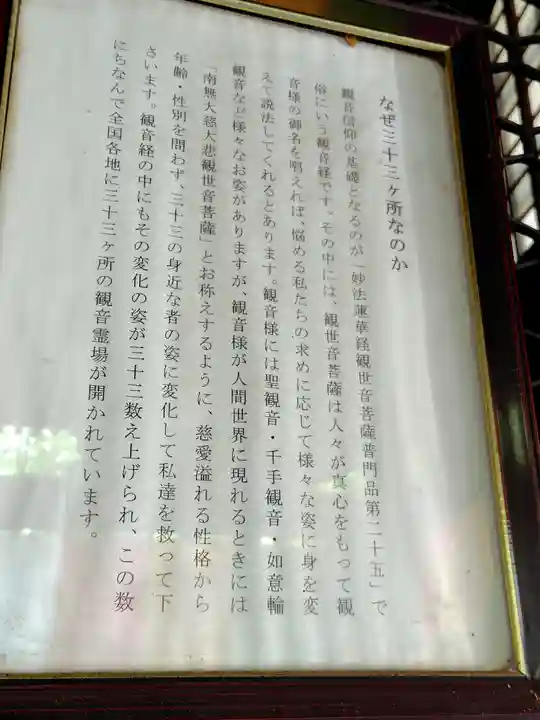 なぜ三十三ヶ所なのか
観音信仰の基礎となるのが「妙法蓮華経観世音菩薩普門品第二十五」で
俗にいう観音経です。その中には、観世音菩薩は人々が真心をもって観
音様の御名を唱えれば、悩める私たちの求めに応じて様々な姿に身を変
えて説法してくれるとあります。観音様には聖観音・千手観音・如意輪
観音など様々なお姿がありますが、観音様が人間世界に現れるときには
「南無大慈大悲観世音菩薩」とお称えするように、慈愛溢れる性格から
年齢・性別を問わず、三十三の身近な者の姿に変化して私達を救って下
さいます。観音経の中にもその変化の姿が三十三数え上げられ、この数
にちなんで全国各地に三十三ヶ所の観音霊場が開かれています。